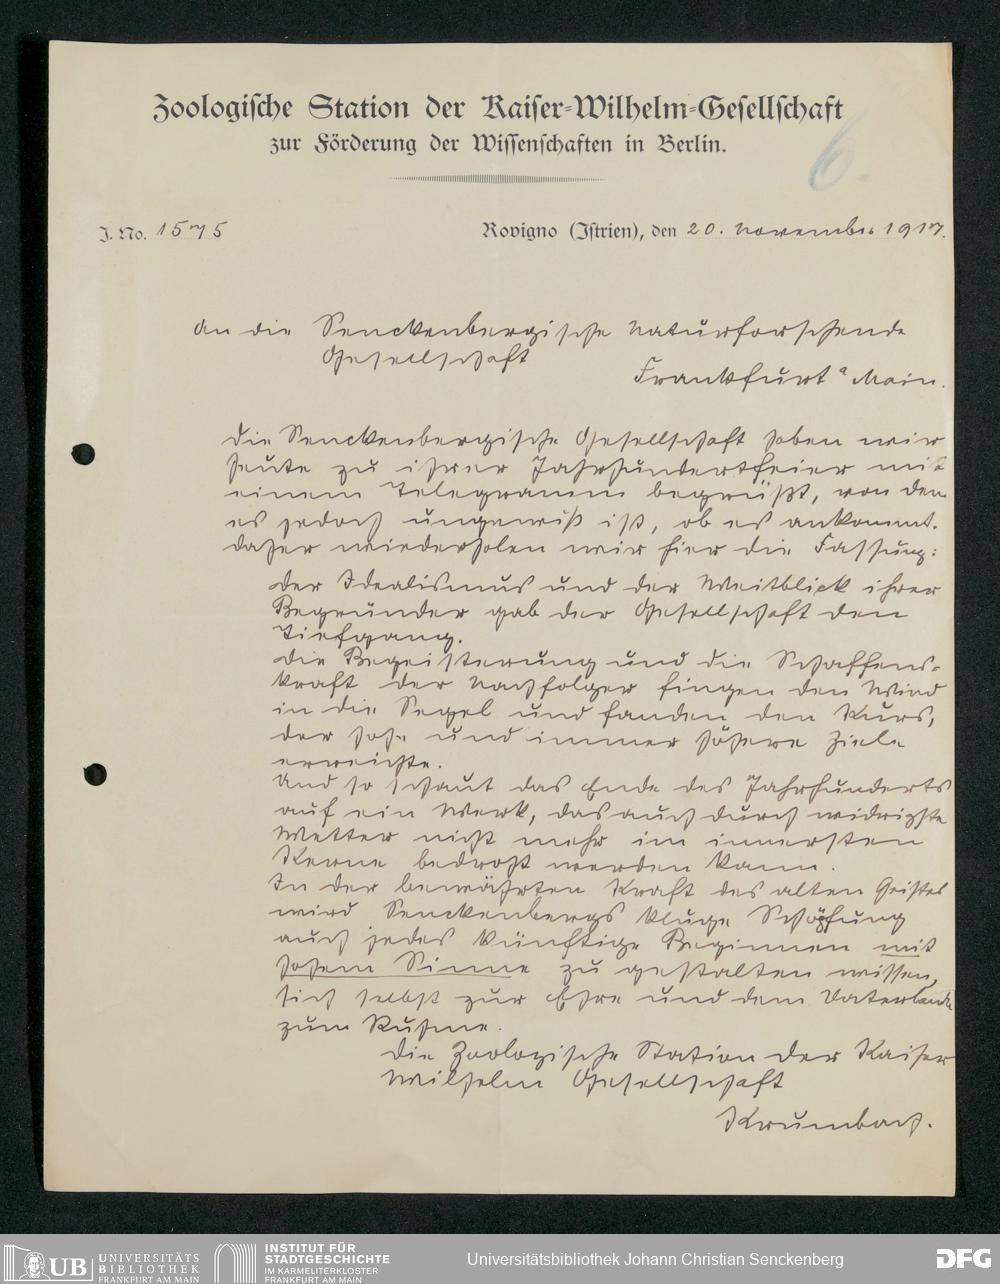 Zoologische Station der Kaiser-Wilhelm-Gesellschaft
zur Förderung der Wissenschaften in Berlin.
6.
J. No. 1575
Rovigno (Istrien), den 20. November 1917.
An die Senckenbergische Naturforschende
Gesellschaft
Frankfurt a Main.
Die Senckenbergische Gesellschaft haben wir
heute zu ihrer Jahrhundertfeier mit
einem Telegramm begrüßt, von dem
es jedoch ungewiß ist, ob es ankommt.
Daher wiederholen wir hier die Fassung:
Der Idealismus und der Weitblick ihrer
Begründer gab der Gesellschaft den
Tiefgang.
Die Begeisterung und die Schaffens-
kraft der Nachfolger fingen den Wind
in die Segel und fanden den Kurs,
der hohe und immer höhere Ziele
erreichte.
Und so schaut das Ende des Jahrhunderts
auf ein Werk, das auch durch widrigste
Wetter nicht mehr im innersten
Kerne bedroht werden kann.
In der bewährten Kraft des alten Geistes
wird Senckenbergs kluge Schöpfung
auch jedes künftige Beginnen mit
hohem Sinne zu gestalten wissen,
sich selbst zur Ehre und dem Vaterlande
zum Ruhme.
Die Zoologische Station der Kaiser
Wilhelm Gesellschaft
Krumbach.
UB UNIVERSITÄTS
BIBLIOTHEK
FRANKFURT AM MAIN
INSTITUT FÜR
STADTGESCHICHTE
IM KARMELITERKLOSTER
FRANKFURT AM MAIN
Universitätsbibliothek Johann Christian Senckenberg
DFG